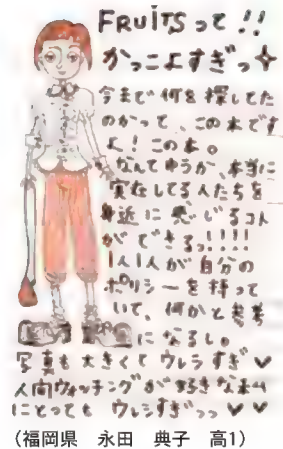 FRUiTSって!!
かっこよすぎっ
今まで何を探してた
のかって、この本です
よ!この本。
なんてゆうか、本当に
実在してる人たちを
身近に感じるコト
ができるっ!!!!
1人1人が自分の
ポリシーを持って
いて、何かと参考
になるし。
写真も大きくてウレシすぎ♥
人間ウォッチングが好きな私
にとっても ウレシすぎっっ♥♥
(福岡県 永田 典子 高1)